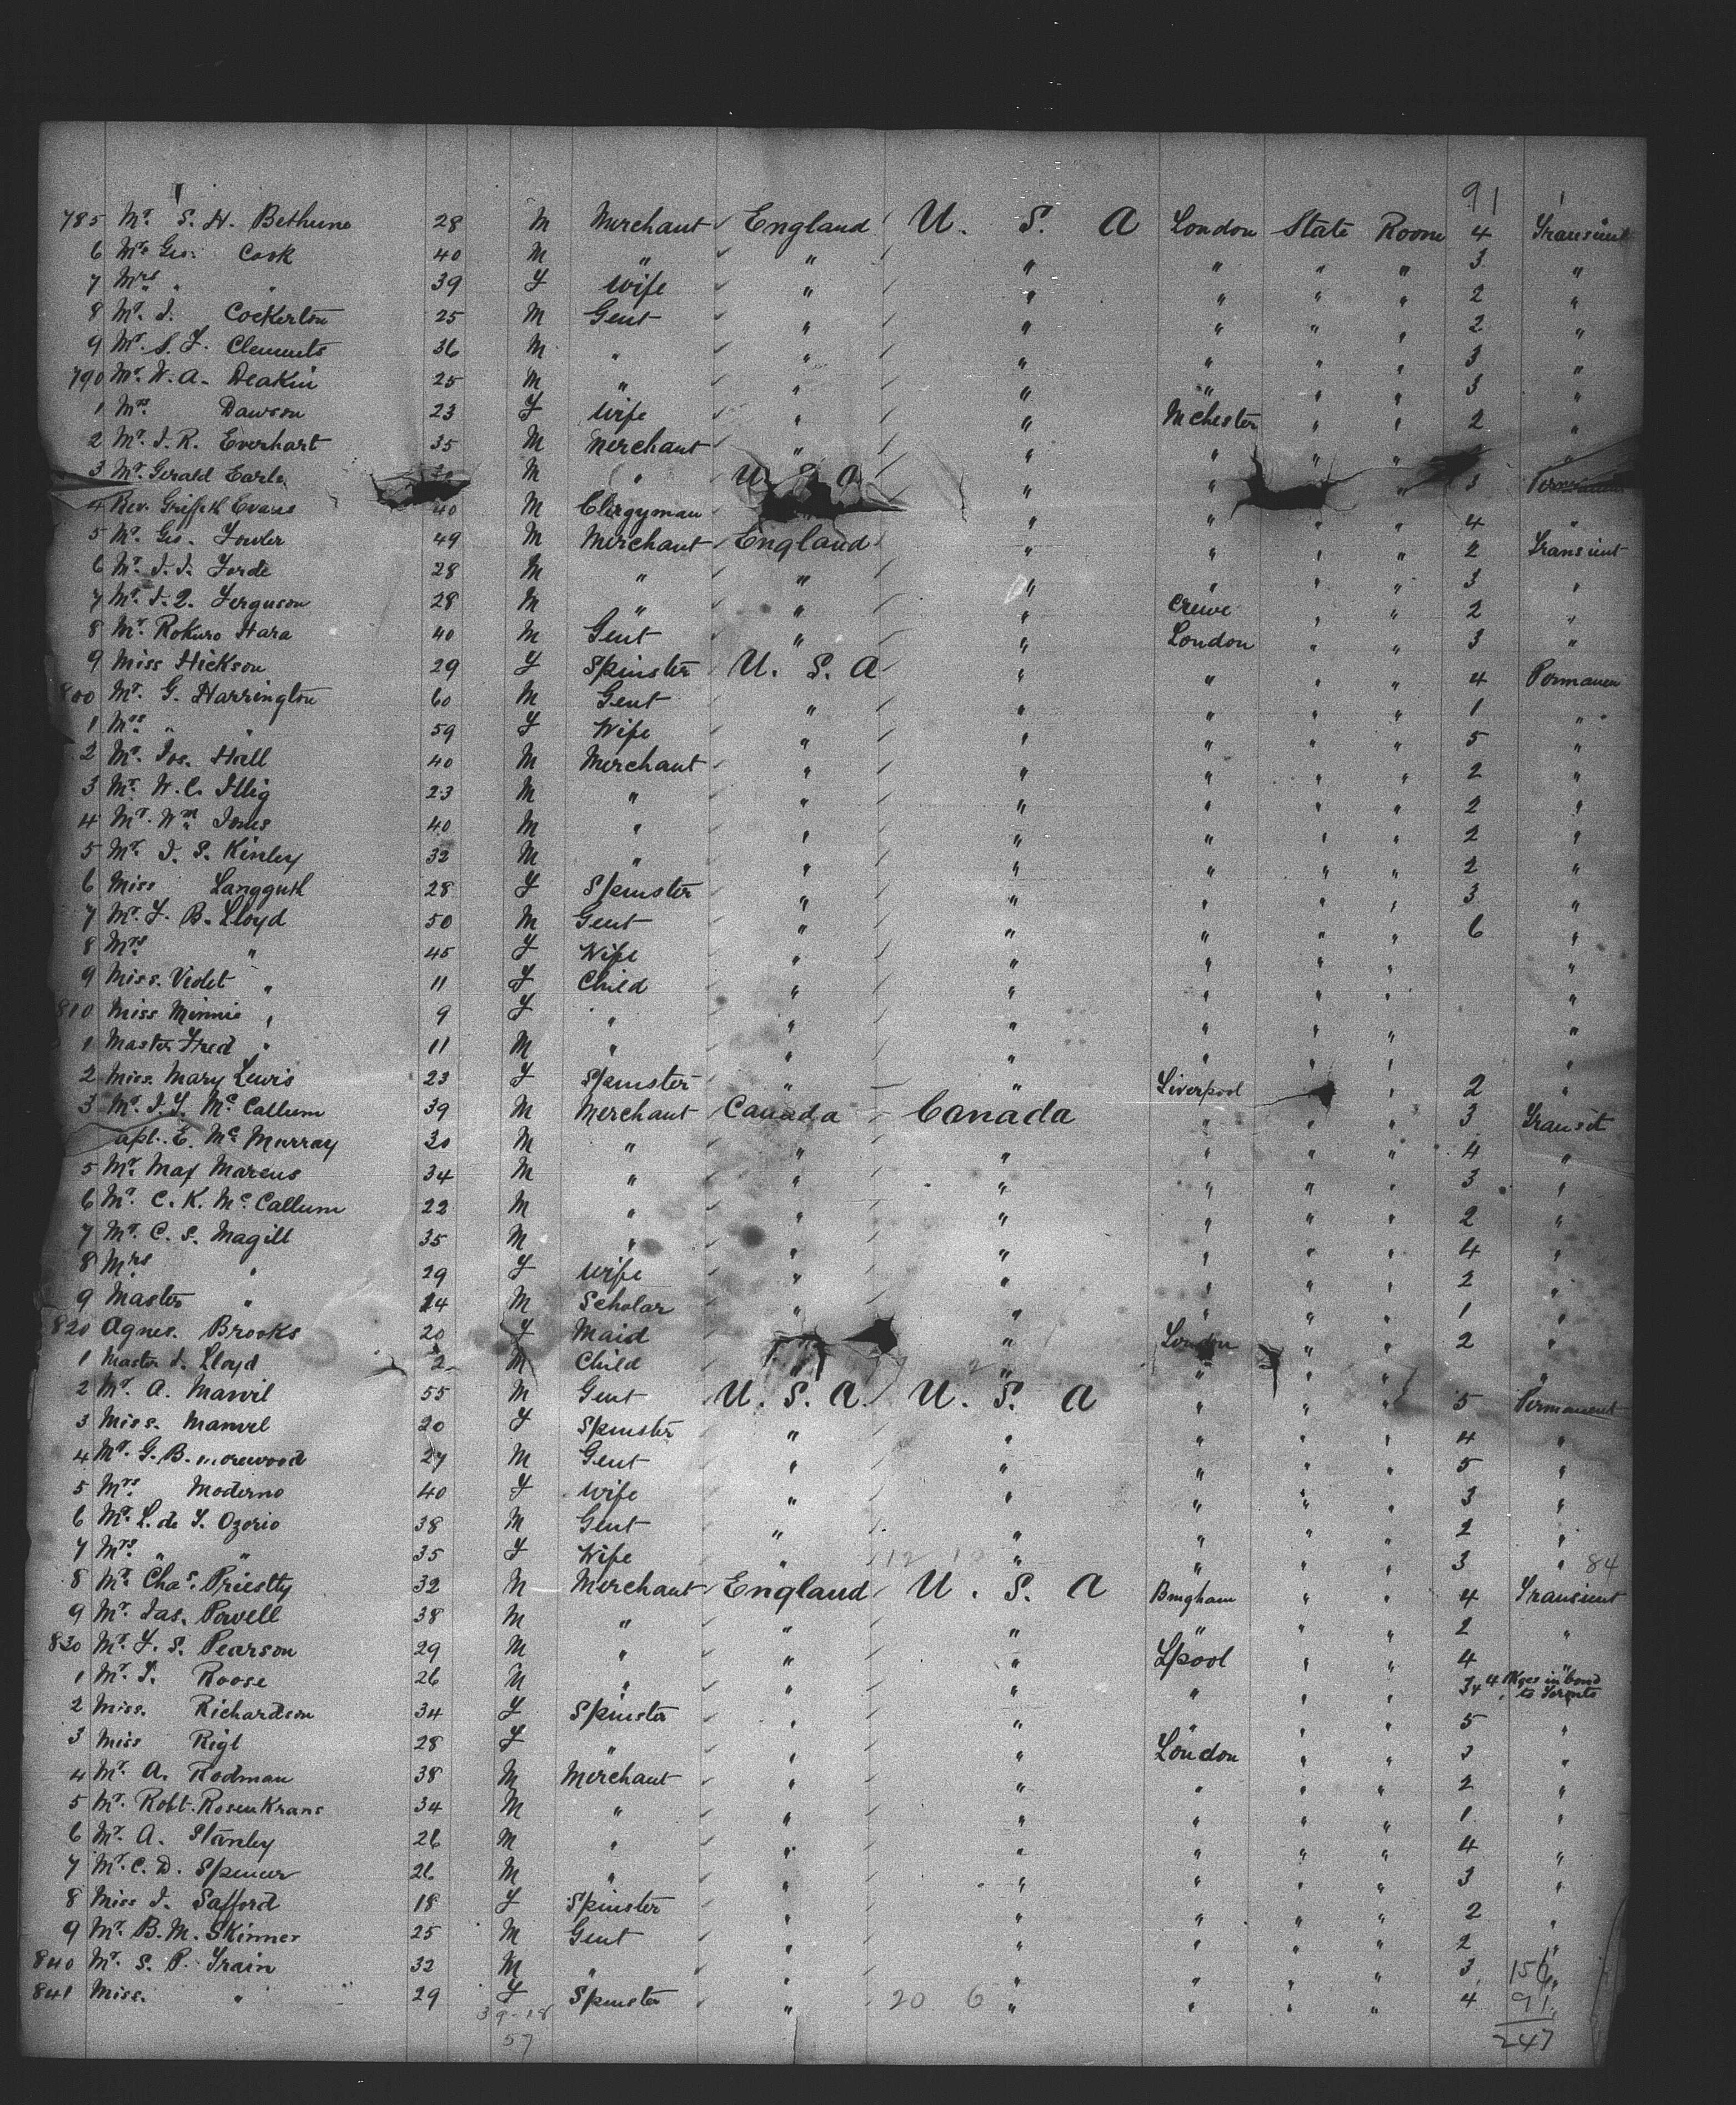 91
785 Mr. S. H. Bethune 28 M Merchant England U. S. A London State Room 4 Transient
6 Mr. Geo. Cook 40 M " " " " " " 3 "
7 Mrs " " 39 F Wife " " " " " 2 "
8 Mr. J. Cockerton 25 M Gent " " " " " 2 "
9 Mr. S. F. Clements 36 M " " " " " " 3 "
790 Mr. W. A. Deakin 25 M " " " " " " 3 "
1 Mrs. Dawson 23 F Wife " " Mchester " " 2 "
2 Mr. J. R. Everhart 35 M Merchant " " " " " "
3 Mr. Gerald Earle M " U S A " " " 3 Permanent
4 Rev. Griffith Evans 40 M Clergyman " " " " 4 "
5 Mr. Geo. Fowler 49 M Merchant England " " " " 2 Transient
6 Mr. J. J. Forde 28 M " " " " " " 3 "
7 Mr. J. Q. Ferguson 28 M " " " Crewe " " 2 "
8 Mr. Rokuro Hara 40 M Gent " " London " " 3 "
9 Miss Hickson 29 F Spinster U. S. A " " " " 4 Permanen
800 Mr. G. Harrington 60 M Gent " " " " " 1 "
1 Mrs " " 59 F Wife " " " " " 5 "
2 Mr. Jos. Hall 40 M Merchant " " " " " 2 "
3 Mr. W. C. Illig 23 M " " " " " " 2 "
4 Mr. Wm Jones 40 M " " " " " " 2 "
5 Mr. J. S. Kinley 32 M " " " " " " 2 "
6 Miss Langguth 28 F Spinster " " " " " 3 "
7 Mr. F. B. Lloyd 50 M Gent " " " " " 6 "
8 Mrs " 45 F Wife " " " " " "
9 Miss. Violet " 11 F Child " " " " " "
810 Miss Minnie " 9 F " " " " " " "
1 Master Fred " 11 M " " " " " " "
2 Miss. Mary Lewis 23 F Spinster " " Liverpool " 2 "
3 Mr. J. Y. McCallum 39 M Merchant Canada Canada " " " 3 Transit
apt. E. McMurray 30 M " " " " " " 4 "
5 Mr. Max Marcus 34 M " " " " " " 3 "
6 Mr. C. K. McCallum 22 M " " " " " " 2 "
7 Mr. C. S. Magill 35 M " " " " " " 4 "
8 Mrs " 29 F Wife " " " " " 2 "
9 Master " 14 M Scholar " " " " " 1 "
820 Agnes. Brooks 20 F Maid " London " " 2 "
1 Master J. Lloyd 2 M Child " " " " " "
2 Mr. A. Marvil 55 M Gent U. S. A. U. S. A " " " 5 Permanent
3 Miss. Marvil 20 F Spinster " " " " " 4 "
4 Mr. G. B. Morewood 27 M Gent " " " " " 5 "
5 Mrs. Moderno 40 F Wife " " " " " 3 "
6 Mr. L. de S. Ozorio 38 M Gent " " " " " 2 "
7 Mrs. " " 35 F Wife " " " " " 3 " 84
8 Mr. Chas. Priestty 32 M Merchant England U. S. A Bmgham " " 4 Transient
9 Mr. Jas. Powell 38 M " " " " " " 2 "
830 Mr. F. S. Pearson 29 M " " " Lpool " " 4 "
1 Mr. J. Roose 26 M " " " " " " 3 + 4 Pkges in bond
to Toronto
2 Miss. Richardson 34 F Spinster " " " " " 5 "
3 Miss Rigl 28 F " " " London " " 3 "
4 Mr. A. Rodman 38 M Merchant " " " " " 2 "
5 Mr. Robt. RosenKrans 34 M " " " " " " 1 "
6 Mr. A. Stanley 26 M " " " " " " 4 "
7 Mr. C. D. Spencer 26 M " " " " " " 3 "
8 Miss J. Safford 18 F Spinster " " " " " 2 "
9 Mr. B. M. Skinner 25 M Gent " " " " " 2 "
840 Mr. S. P. Train 32 M " " " " " " 3 156
841 Miss. " 29 F Spinster " 20 6 " " " " 4 91
39-18
57 247